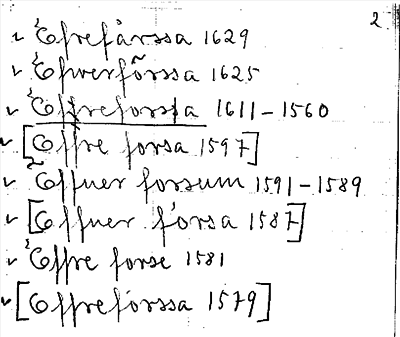 2
Efrefårssa 1629
Efwerförssa 1625
Effreforssa 1611-1560
[Offre forsa 1597]
Offuer forssum 1591-1589
[Offuer fórsa 1587]
Offre forse 1581
[Offreforssa 1579]